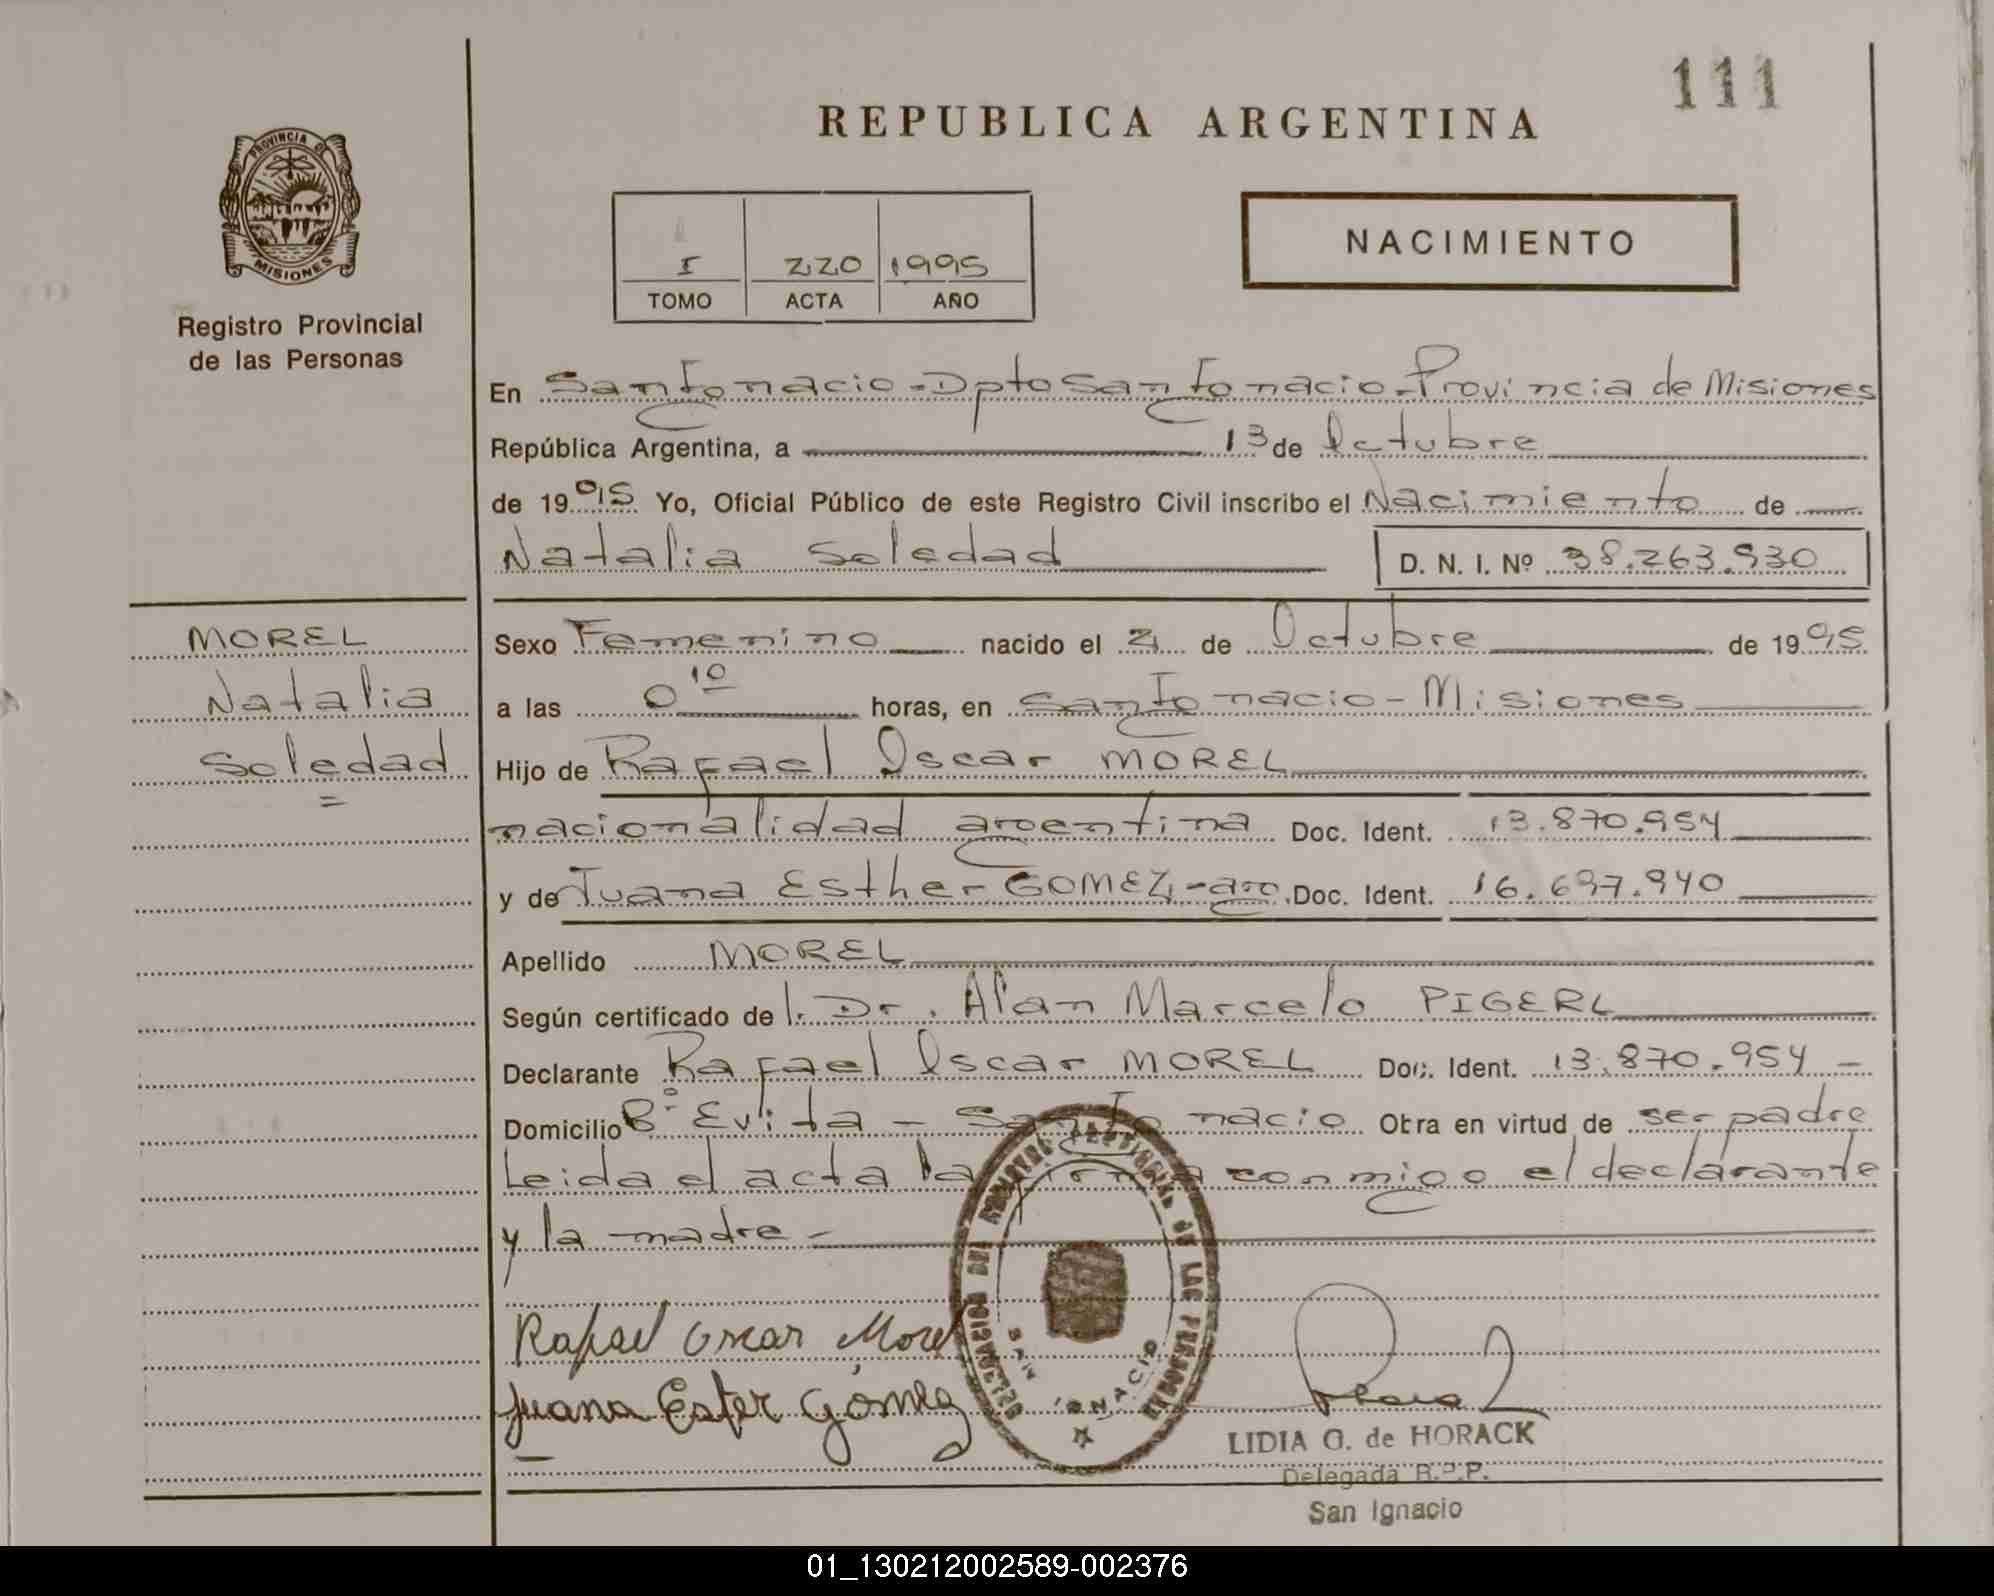 111
REPUBLICA ARGENTINA
PROVINCIA DE
MISIONES
Registro Provincial
de las Personas
I 220 1995
TOMO ACTA AÑO
NACIMIENTO
En San Ignacio - Dpto San Ignacio - Provincia de Misiones
República Argentina, a 13 de Octubre
de 1995 Yo, Oficial Público de este Registro Civil inscribo el Nacimiento de
Natalia Soledad D. N. I. Nº 38.263.930
MOREL
Natalia
Soledad
Sexo Femenino nacido el 2 de Octubre de 1995
a las 0 10 horas, en San Ignacio - Misiones
Hijo de Rafael Oscar MOREL
nacionalidad argentina Doc. Ident. 13.870.954
y de Juana Esther GOMEZ - arg. Doc. Ident. 16.697.940
Apellido MOREL
Según certificado de l. Dr. Alan Marcelo PIGERL
Declarante Rafael Oscar MOREL Doc. Ident. 13.870.954 -
Domicilio Bº Evita - San Ignacio Obra en virtud de ser padre
Leida el acta la firma conmigo el declarante
y la madre -
Rafael Oscar Morel
Juana Ester Gómez
DELEGACION DEL REGISTRO PROVINCIAL DE LAS PERSONAS
SAN IGNACIO
LIDIA G. de HORACK
Delegada R.P.P.
San Ignacio
01_130212002589-002376